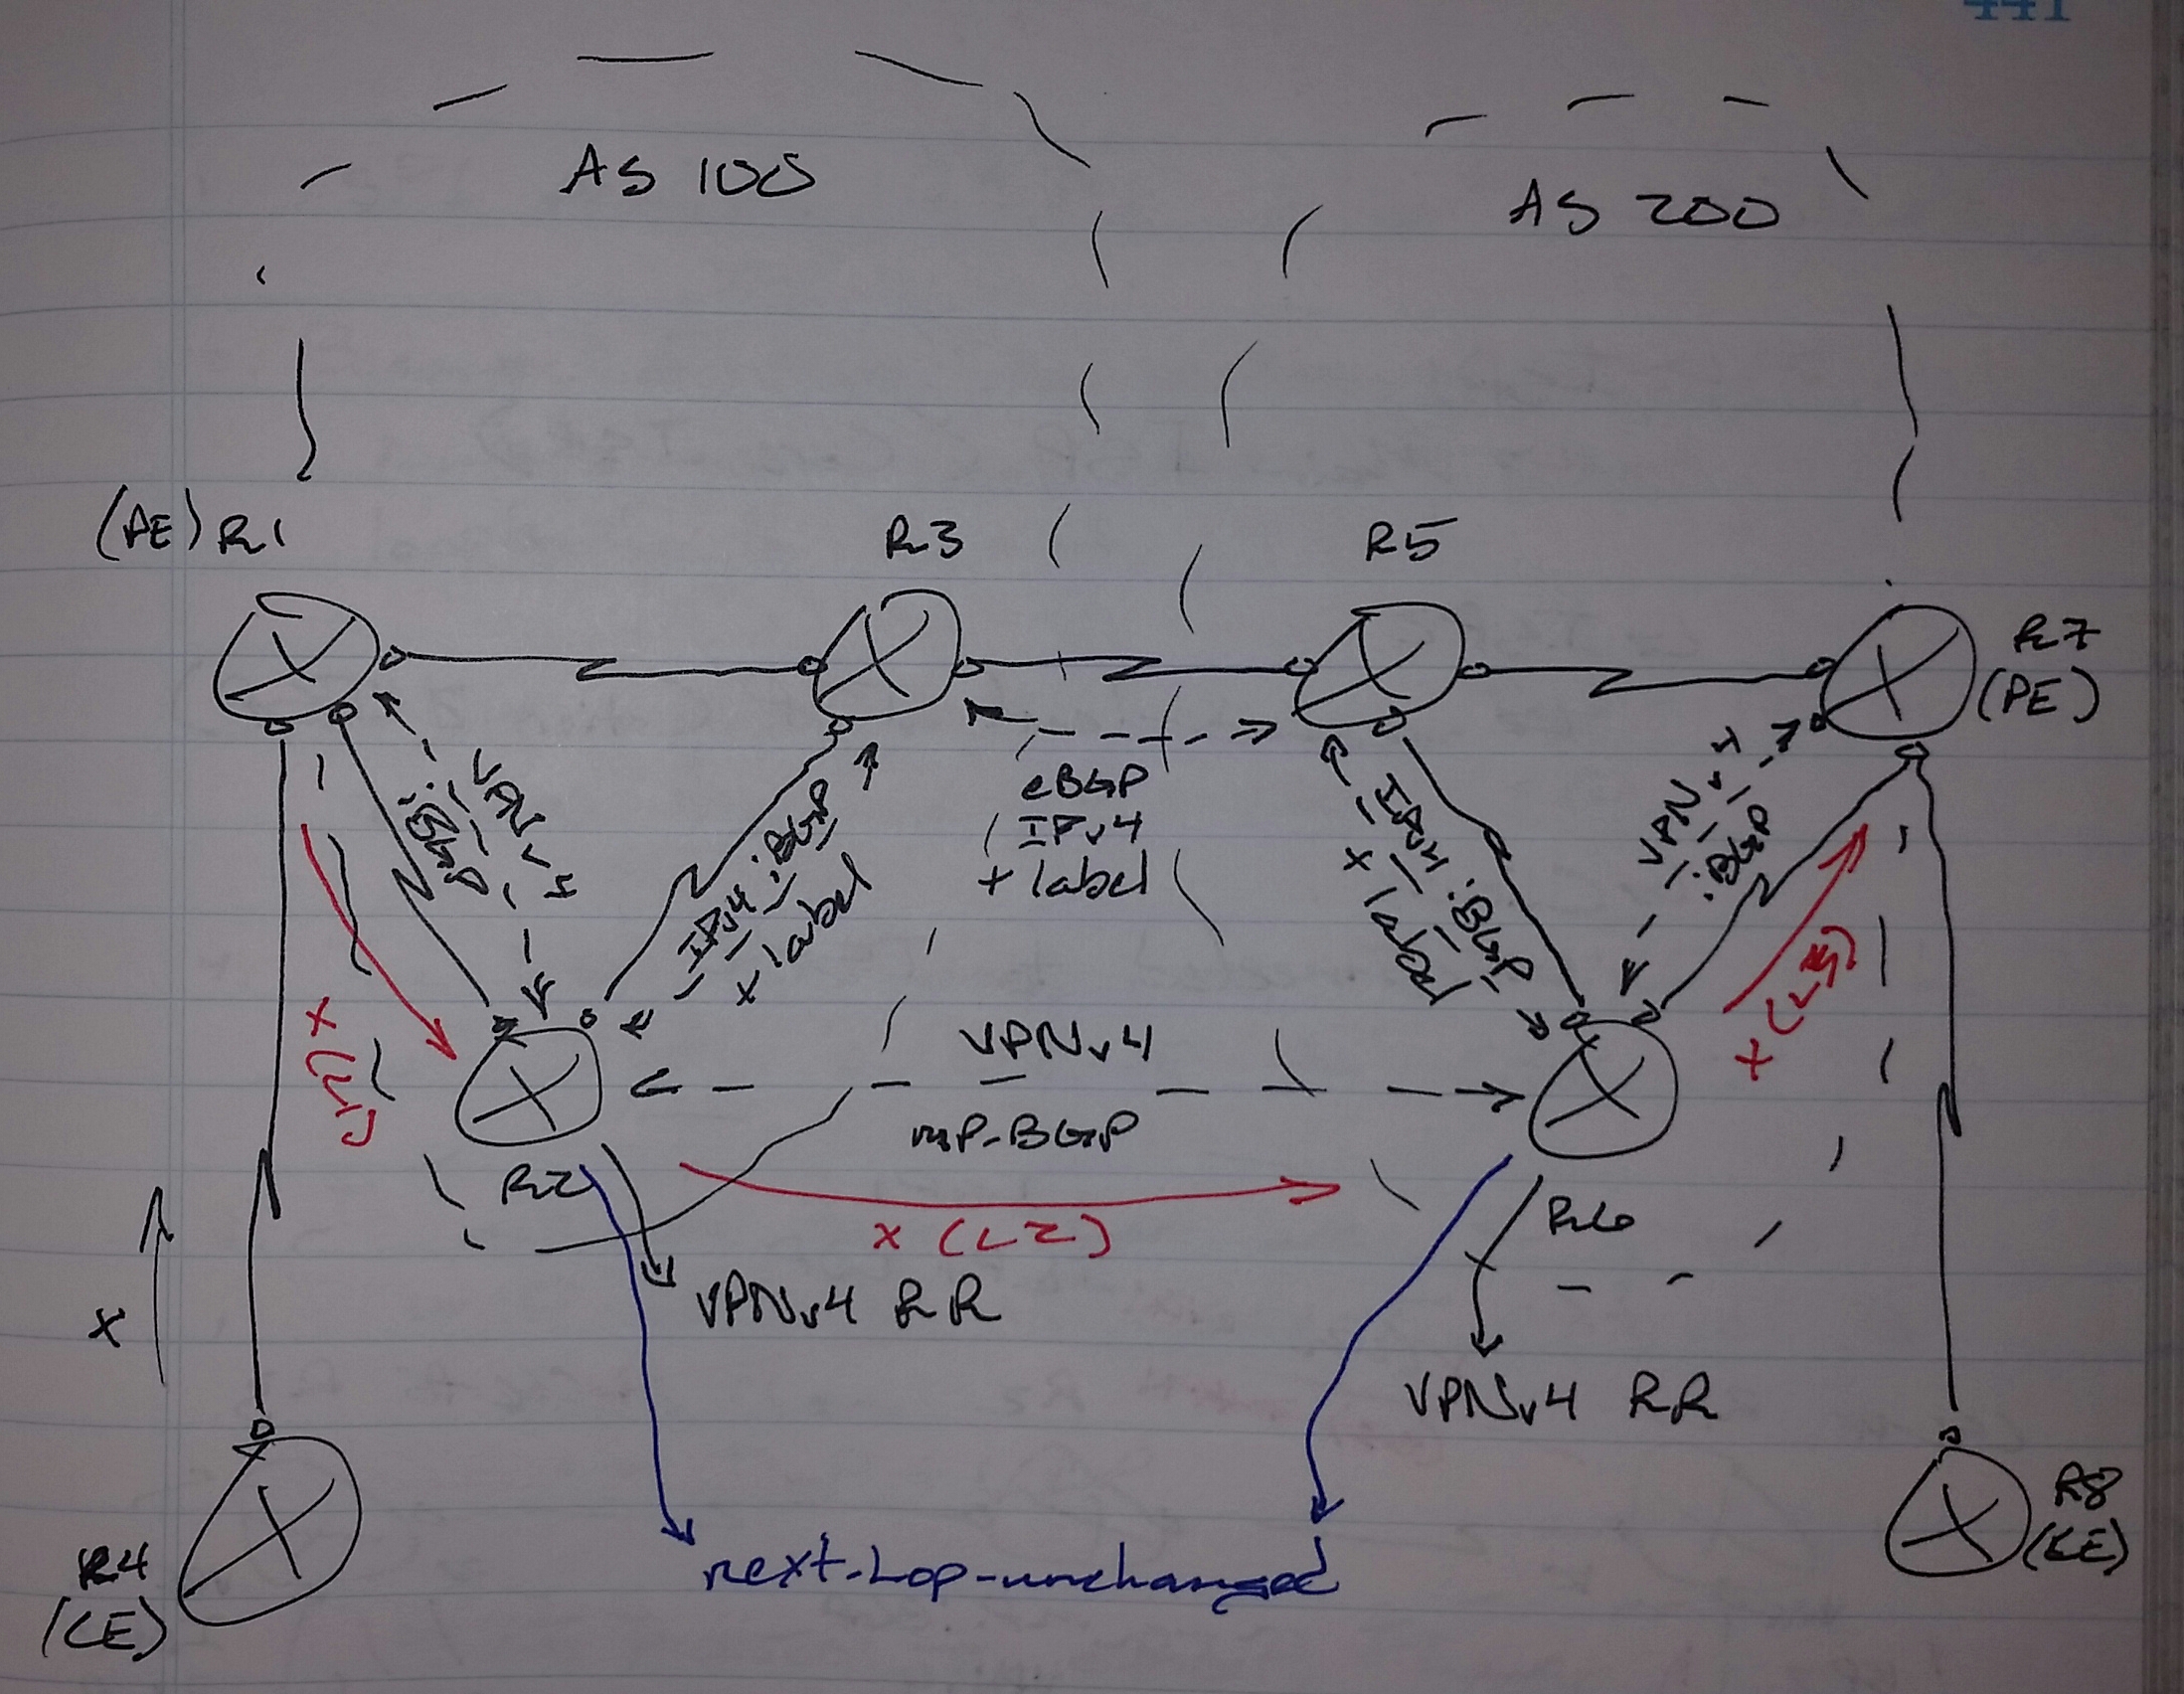 441
AS 100
AS 200
(PE) R1
R3
R5
R7
(PE)
VPNv4
iBGP
IPv4 iBGP
+ label
eBGP
IPv4
+ label
IPv4 iBGP
+ label
VPNv4
iBGP
x (L1)
VPNv4
mP-BGP
R2
x (L2)
R6
x
VPNv4 RR
VPNv4 RR
next-hop-unchanged
R4
(CE)
R8
(CE)